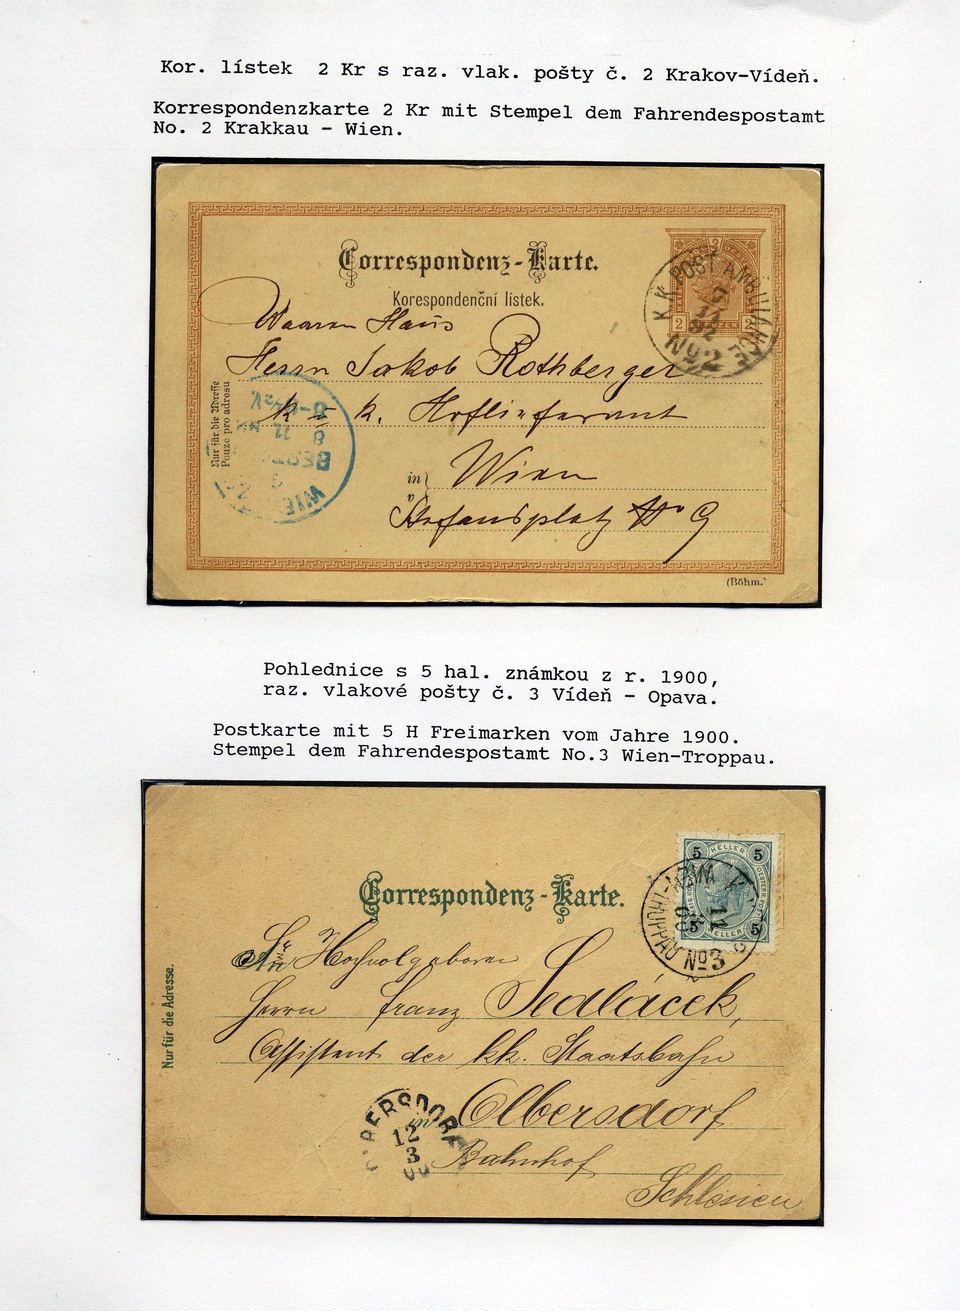 Kor. lístek  2 Kr s raz. vlak. pošty č. 2 Krakov-Vídeň.
Korrespondenzkarte 2 Kr mit Stempel dem Fahrendespostamt
No. 2 Krakkau - Wien.
Correspondenz-Karte.
Korespondenční lístek.
2 2
K.K. POST AMBULANCE
7
11
92
No 2
Waaren Haus
Herrn Jakob Rothberger
k u k. Hoflieferant
Nur für die Adresse
Pouze pro adresu
in
v
Wien
Stefansplatz No 9
WIEN
BEST
8
11
(Böhm.)
Pohlednice s 5 hal. známkou z r. 1900,
raz. vlakové pošty č. 3 Vídeň - Opava.
Postkarte mit 5 H Freimarken vom Jahre 1900.
Stempel dem Fahrendespostamt No.3 Wien-Troppau.
5 HELLER 5
5 HELLER 5
No 3
11
Correspondenz-Karte.
An
Hochwolgeboren
Herrn Franz Sedláček,
Assistent der kk. Staatsbahn
in
Olbersdorf
Bahnhof
Schlesien
OLBERSDORF
12
3
00
Nur für die Adresse.